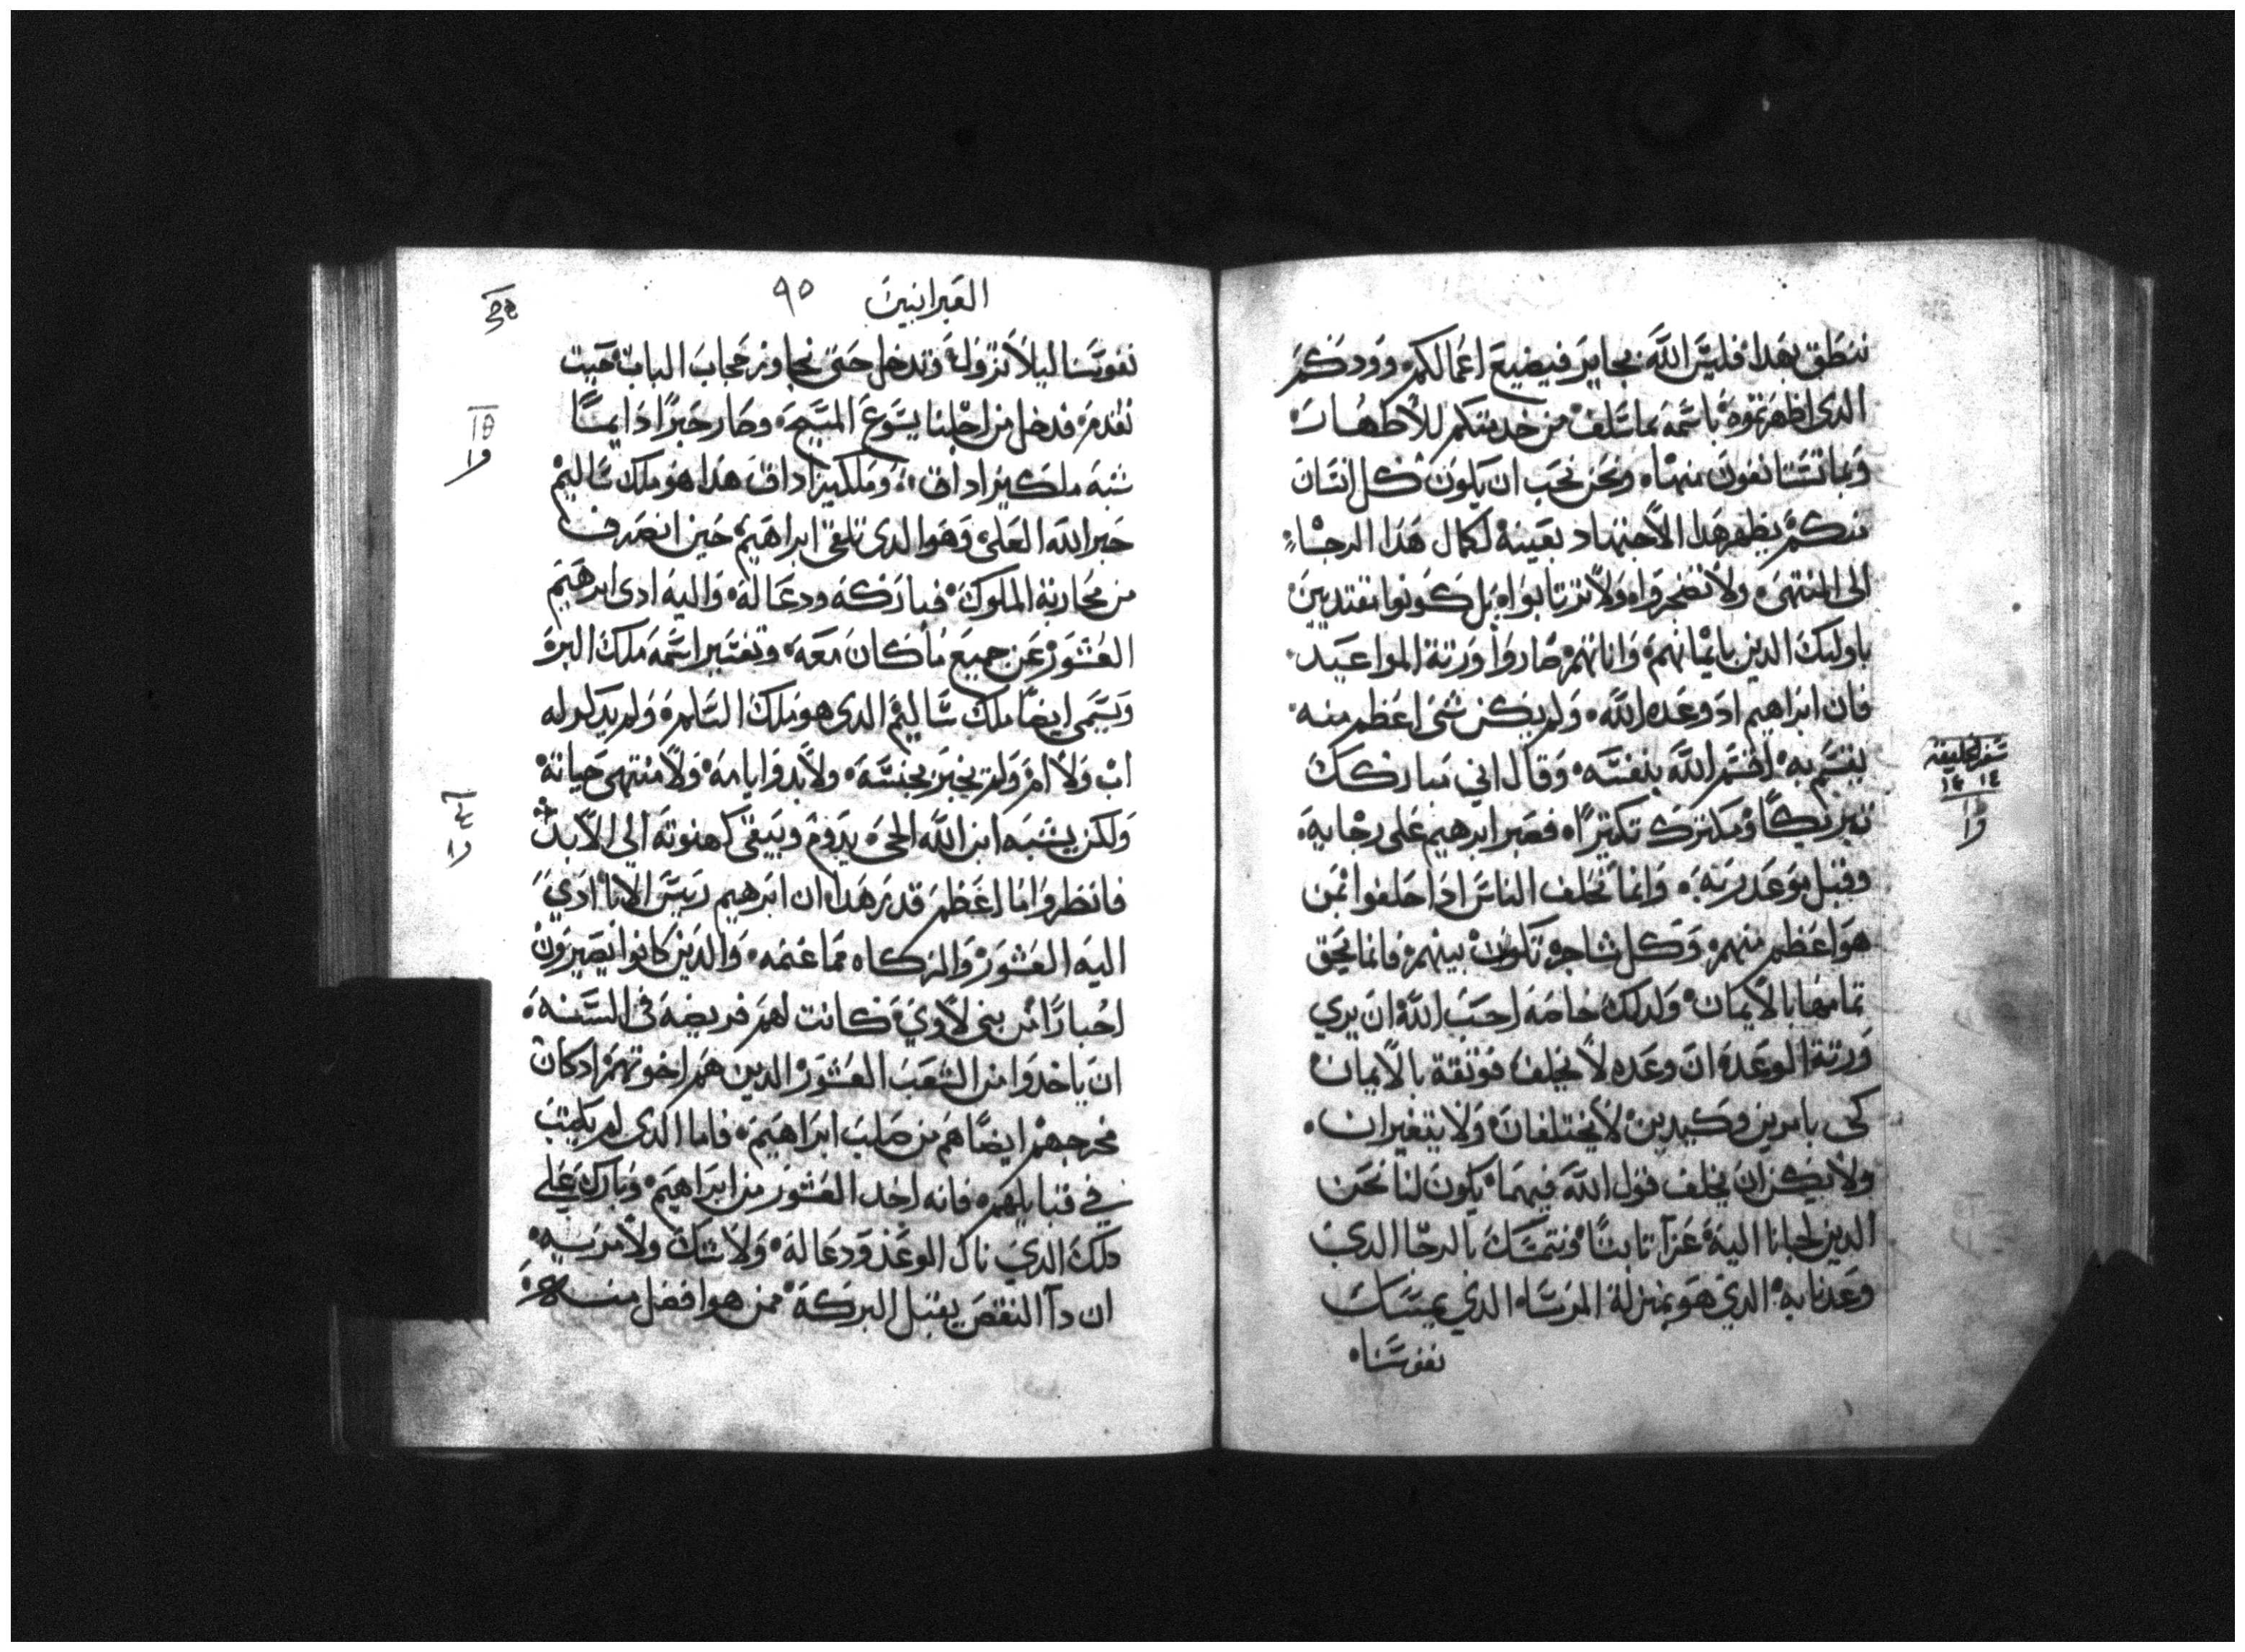 ننطق بهدا فليس الله بجاير فيضيع اعمالكم وودكم
الدى اظهرتموه باسمه بما سلف من خدمتكم للاطهار
وبما تستانفون منها ونحن نحب ان يكون كل انسان
منكم يظهر هدا الاجتهاد بعينه لكمال هدا الرجاء
الى المنتهى ولا تضجروا ولا ترتابوا بل كونوا مقتديين
باوليك الدين بايمانهم واناتهم صاروا ورتة المواعيد
فان ابراهيم اد وعده الله ولم يكن شى اعظم منه
يقسم به اقسم الله بنفسه وقال اني مباركك
تبريكًا ومكترك تكتيرًا فصبر ابرهيم على رجايه
وقبل موعد ربه وانما تحلف الناس ادا حلفوا بمن
هو اعظم منهم وكل مشاجرة تكون بينهم فانما يحق
تمامها بالايمان ولدلك خاصة احب الله ان يري
ورتة الوعد ان وعده لا يخلف فوتقة بالايمان
كى بامرين وكيدين لا يختلفان ولا يتغيران
ولا يمكن ان يخلف قول الله فيهما يكون لنا نحن
الدين لجانا اليه عزآ تابتًا ونتمسك بالرجا الدي
وعدنا به الدي هو بمنزلة المرساه الدي يمسك
نفوسنا
العبرانيين ٩٥
نفوسنا ليلا تزول وتدخل حتى تجاوز حجاب الباب حيت
تقدم فدخل من اجلنا يسوع المسيح وصار حبرًا دايمًا
شبه ملكيزاداق وملكيزاداق هدا هو ملك ساليم
حبر الله العلى وهو الدى تلقى ابراهيم حين انصرف
من محاربة الملوك فباركه ودعا له واليه ادى ابرهيم
العشور عن جميع ما كان معه وتفسير اسمه ملك البر و
ويسمى ايضًا ملك ساليم الدى هو ملك السلم ولم يدكر له
اب ولا ام ولم يخبر بجنسه ولا بدو ايامه ولا منتهى حياته
ولكن يشبه ابن الله الحى يدوم ويبقى كهنوته الى الابد
فانظروا ما اعظم قدر هدا ان ابرهيم ريس الابا ادي
اليه العشور والزكاه مما غنمه والدين كانوا يصيرون
احبارًا من بني لاوي كانت لهم فريضة فى السنه
ان ياخدوا من الشعب العشور الدين هم اخوتهم اد كان
مخرجهم ايضًا هم من صلب ابراهيم فاما الدى لم يكتب
في قبايلهم فانه اخد العشور من ابراهيم وبارك على
دلك الدي نال الوعد ودعا له ولا شك ولا مريه
ان دآ النقص يقبل البركة ممن هو افضل منه
سفر الخليقه